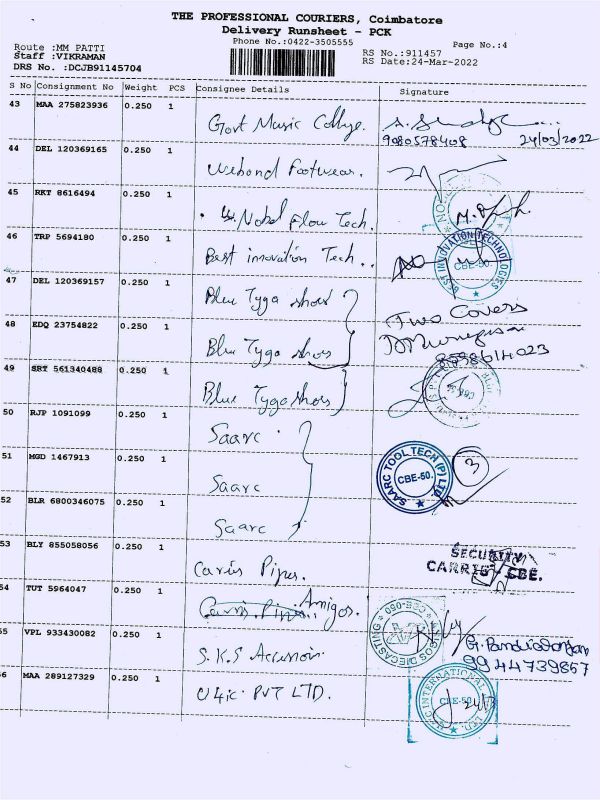 THE PROFESSIONAL COURIERS, Coimbatore
Delivery Runsheet - PCK
Phone No.:0422-3505555
Page No.:4
Route :MM PATTI
RS No.:911457
Staff :VIKRAMAN
RS Date:24-Mar-2022
DRS No. :DCJB91145704
S No Consignment No Weight PCS Consignee Details Signature
43 MAA 275823936 0.250 1 Govt Music College.
9080578408 24/03/2022
44 DEL 120369165 0.250 1 Webond Footwear.
45 RKT 8616494 0.250 1 Nobel Flow Tech.
46 TRP 5694180 0.250 1 Best innovation Tech..
BEST INNOVATION TECHNOLOGIES CBE-50.
47 DEL 120369157 0.250 1 Blue Tyga shoes
Two Covers
48 EDQ 23754822 0.250 1 Blue Tyga shoes
8598614023
49 SRT 561340488 0.250 1 Blue Tyga shoes
50 RJP 1091099 0.250 1 Saarc
51 MGD 1467913 0.250 1 Saarc
SAARC TOOL TECH (P) LTD. CBE-50. 3
52 BLR 6800346075 0.250 1 Saarc
53 BLY 855058056 0.250 1 Carris Pipes.
SECURITY
CARRIS - CBE.
54 TUT 5964047 0.250 1 Carris Pipes.. Amigos.
AMIGOS DIECASTING
55 VPL 933430082 0.250 1 S.K.S
9944739867
56 MAA 289127329 0.250 1 U4ic PVT LTD.
INTERNATIONAL CBE-50